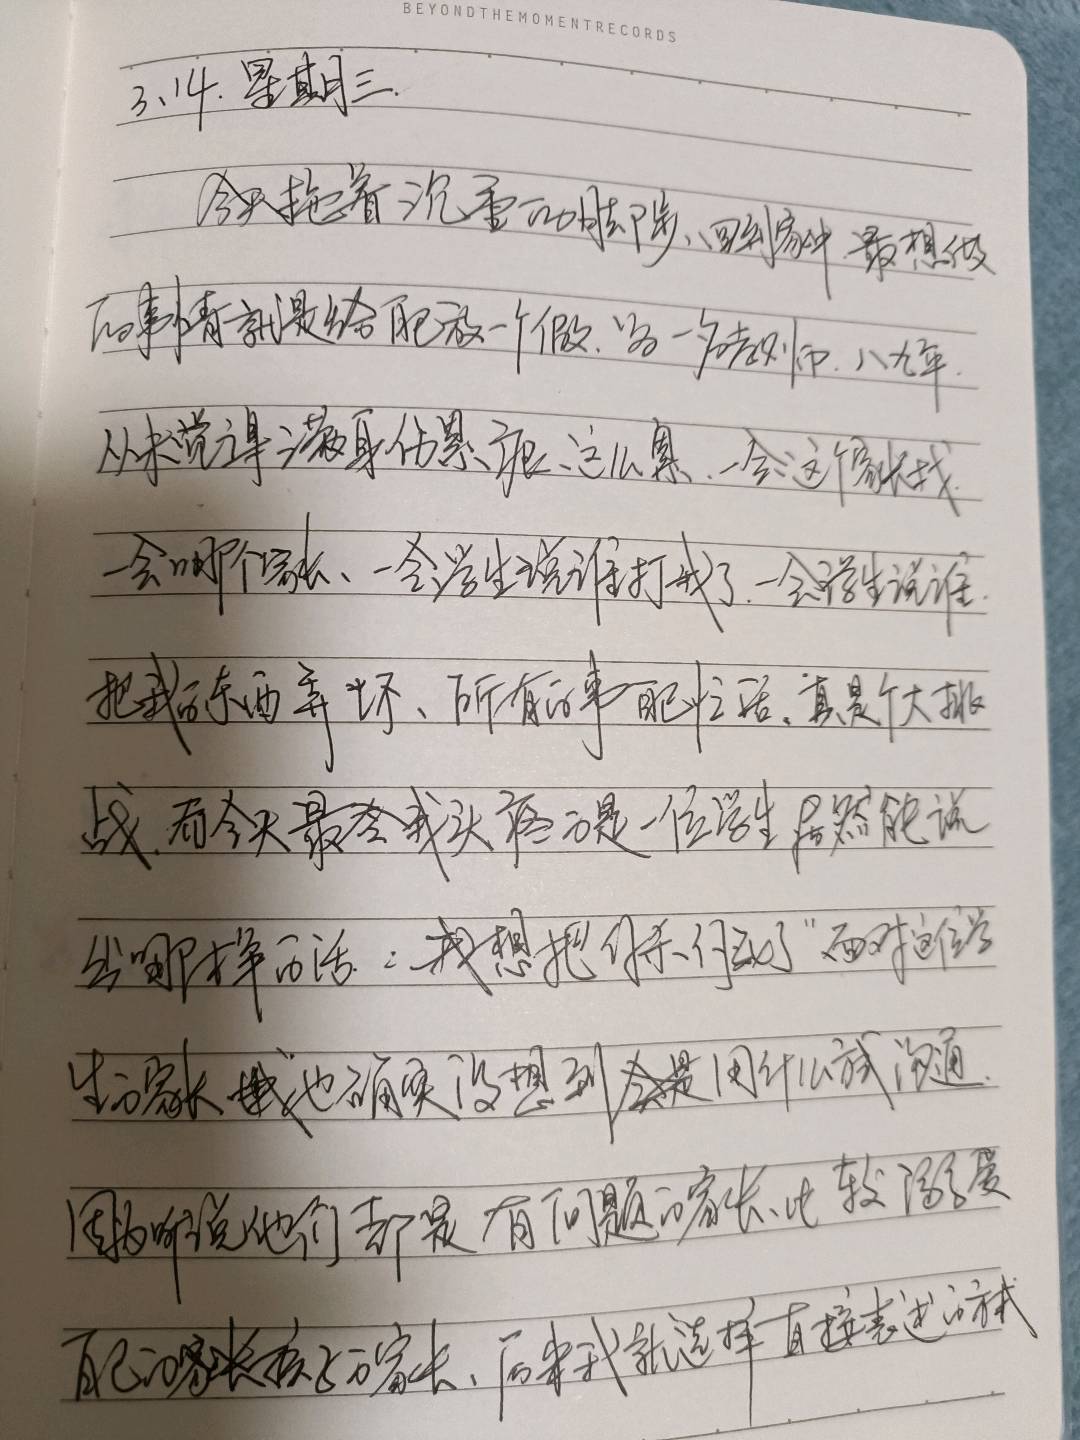 BEYONDTHEMOMENTRECORDS
3.14.星期三.
今天拖着沉重的脚步、回到家中.最想做
的事情就是给自己放一个假.当一名老师.八九年.
从未觉得满身伤累、这么累.一会这个家长找.
一会哪个家长、一会学生说谁打我了.一会学生说谁.
把我的东西弄坏、所有的事自己忙活.真是个大挑
战.而今天最令我头疼的是一位学生居然能说
出哪样的话.:我想把你杀了"面对这位学
生的家长我也确实没想到是用什么方式沟通.
因为听说他们都是有问题的家长、比较溺爱
自己的孩子的家长、后来我就选择直接表述的方式